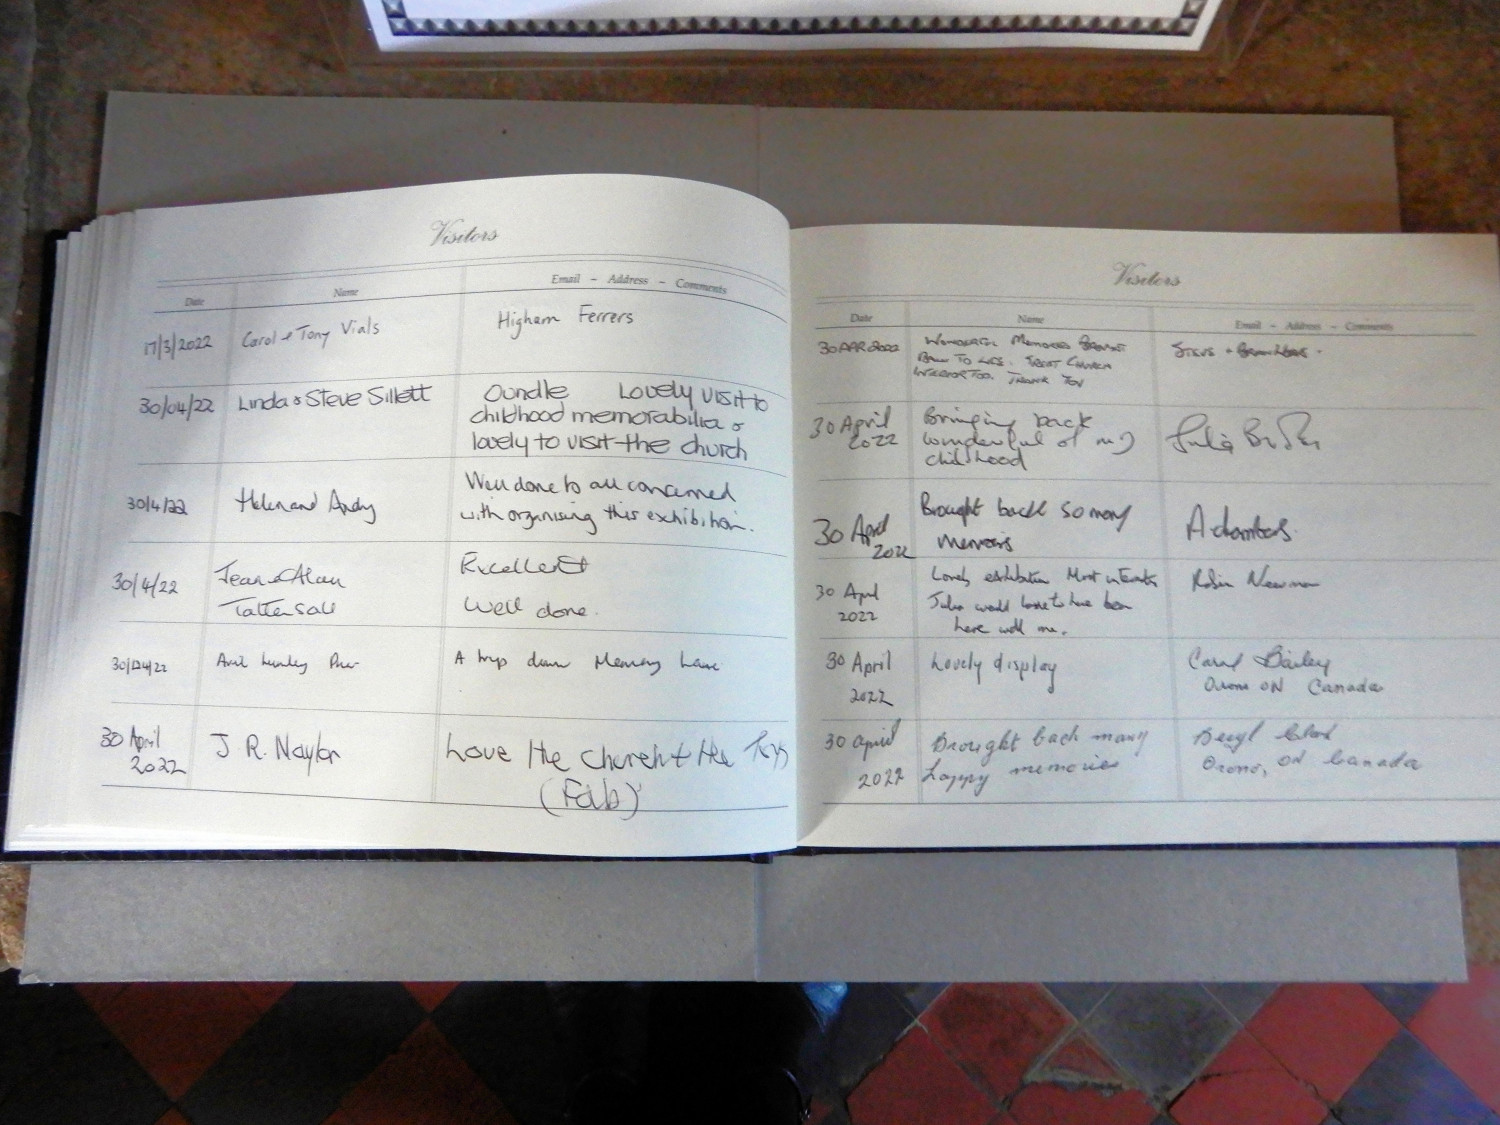 Visitors
Date Name Email – Address – Comments
17/3/2022 Carol & Tony Vials Higham Ferrers
30/04/22 Linda & Steve Sillett Oundle Lovely visit to
childhood memorabilia &
lovely to visit the church
30/4/22 Helen and Andy Well done to all concerned
with organising this exhibition.
30/4/22 Jean & Alan Excellent
Tattersall Well done.
30/04/22 A trip down Memory Lane
30 April J R. Naylor Love the church + the Toys
2022 (Fab)
Visitors
Date Name Email – Address – Comments
30 APR 2022 Wonderful Memories Brought
Back To Life. Great Church
Interior Too. Thank You
30 April Bringing back
2022 wonderful of my
childhood
30 April Brought back so many
2022
30 April Lovely exhibition Most Robin Newman
2022 would love to have been
here with me.
30 April Lovely display Carol Bailey
2022 Orono ON Canada
30 April Brought back many Beryl
2022 happy memories Orono, ON Canada